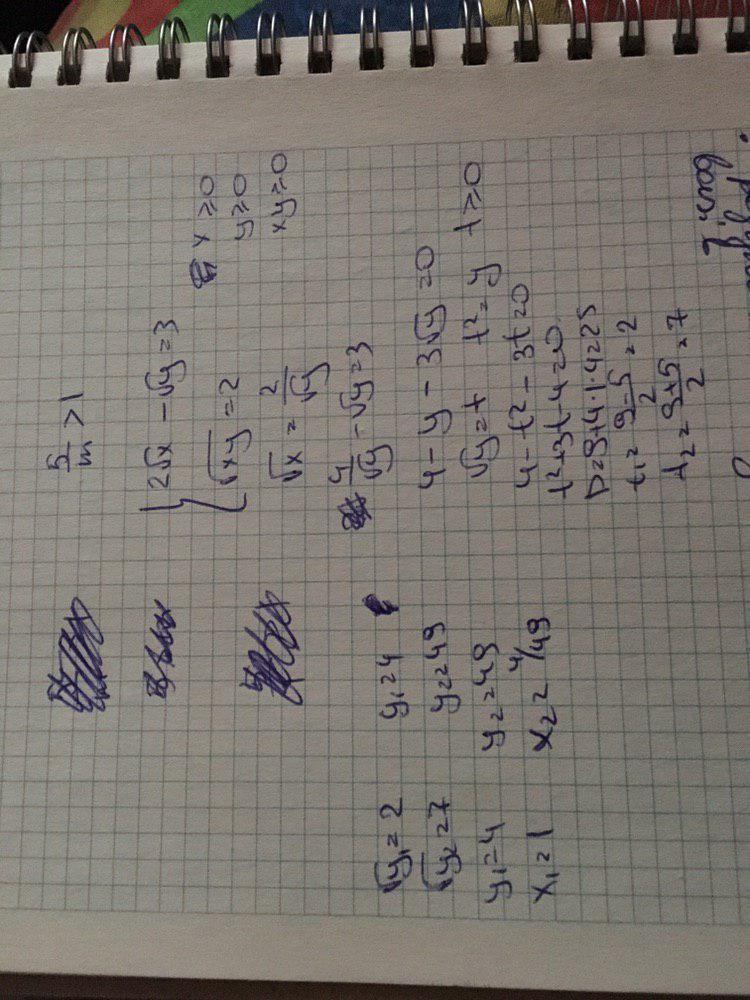 5/m > 1
{ 2√x − √y = 3
√xy = 2
x ≥ 0
y ≥ 0
xy ≥ 0
√x = 2/√y
4/√y − √y = 3
4 − y − 3√y = 0
√y = t t² = y t ≥ 0
4 − t² − 3t = 0
t² + 3t − 4 = 0
D = 9 + 4·1·4 = 25
t₁ = (9 − 5)/2 = 2
t₂ = (9 + 5)/2 = 7
√y₁ = 2 y₁ = 4
√y₂ = 7 y₂ = 49
y₁ = 4 y₂ = 49
x₁ = 1 x₂ = 4/49